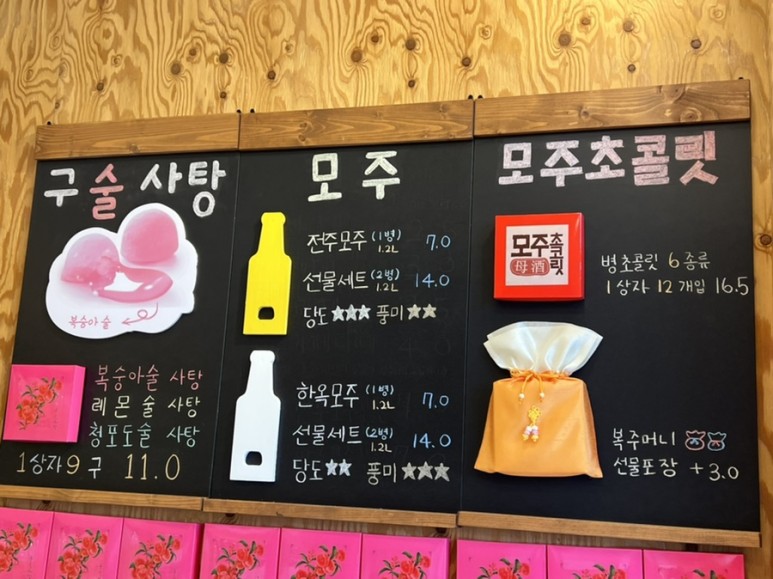 구술사탕
복숭아술
복숭아술 사탕
레몬술 사탕
청포도술 사탕
1상자 9구 11.0
모주
전주모주 (1병) 1.2L 7.0
선물세트 (2병) 1.2L 14.0
당도 ★★★ 풍미 ★★
한옥모주 (1병) 1.2L 7.0
선물세트 (2병) 1.2L 14.0
당도 ★★ 풍미 ★★★
모주초콜릿
모주초콜릿
母酒
병초콜릿 6종류
1상자 12개입 16.5
복주머니
선물포장 +3.0